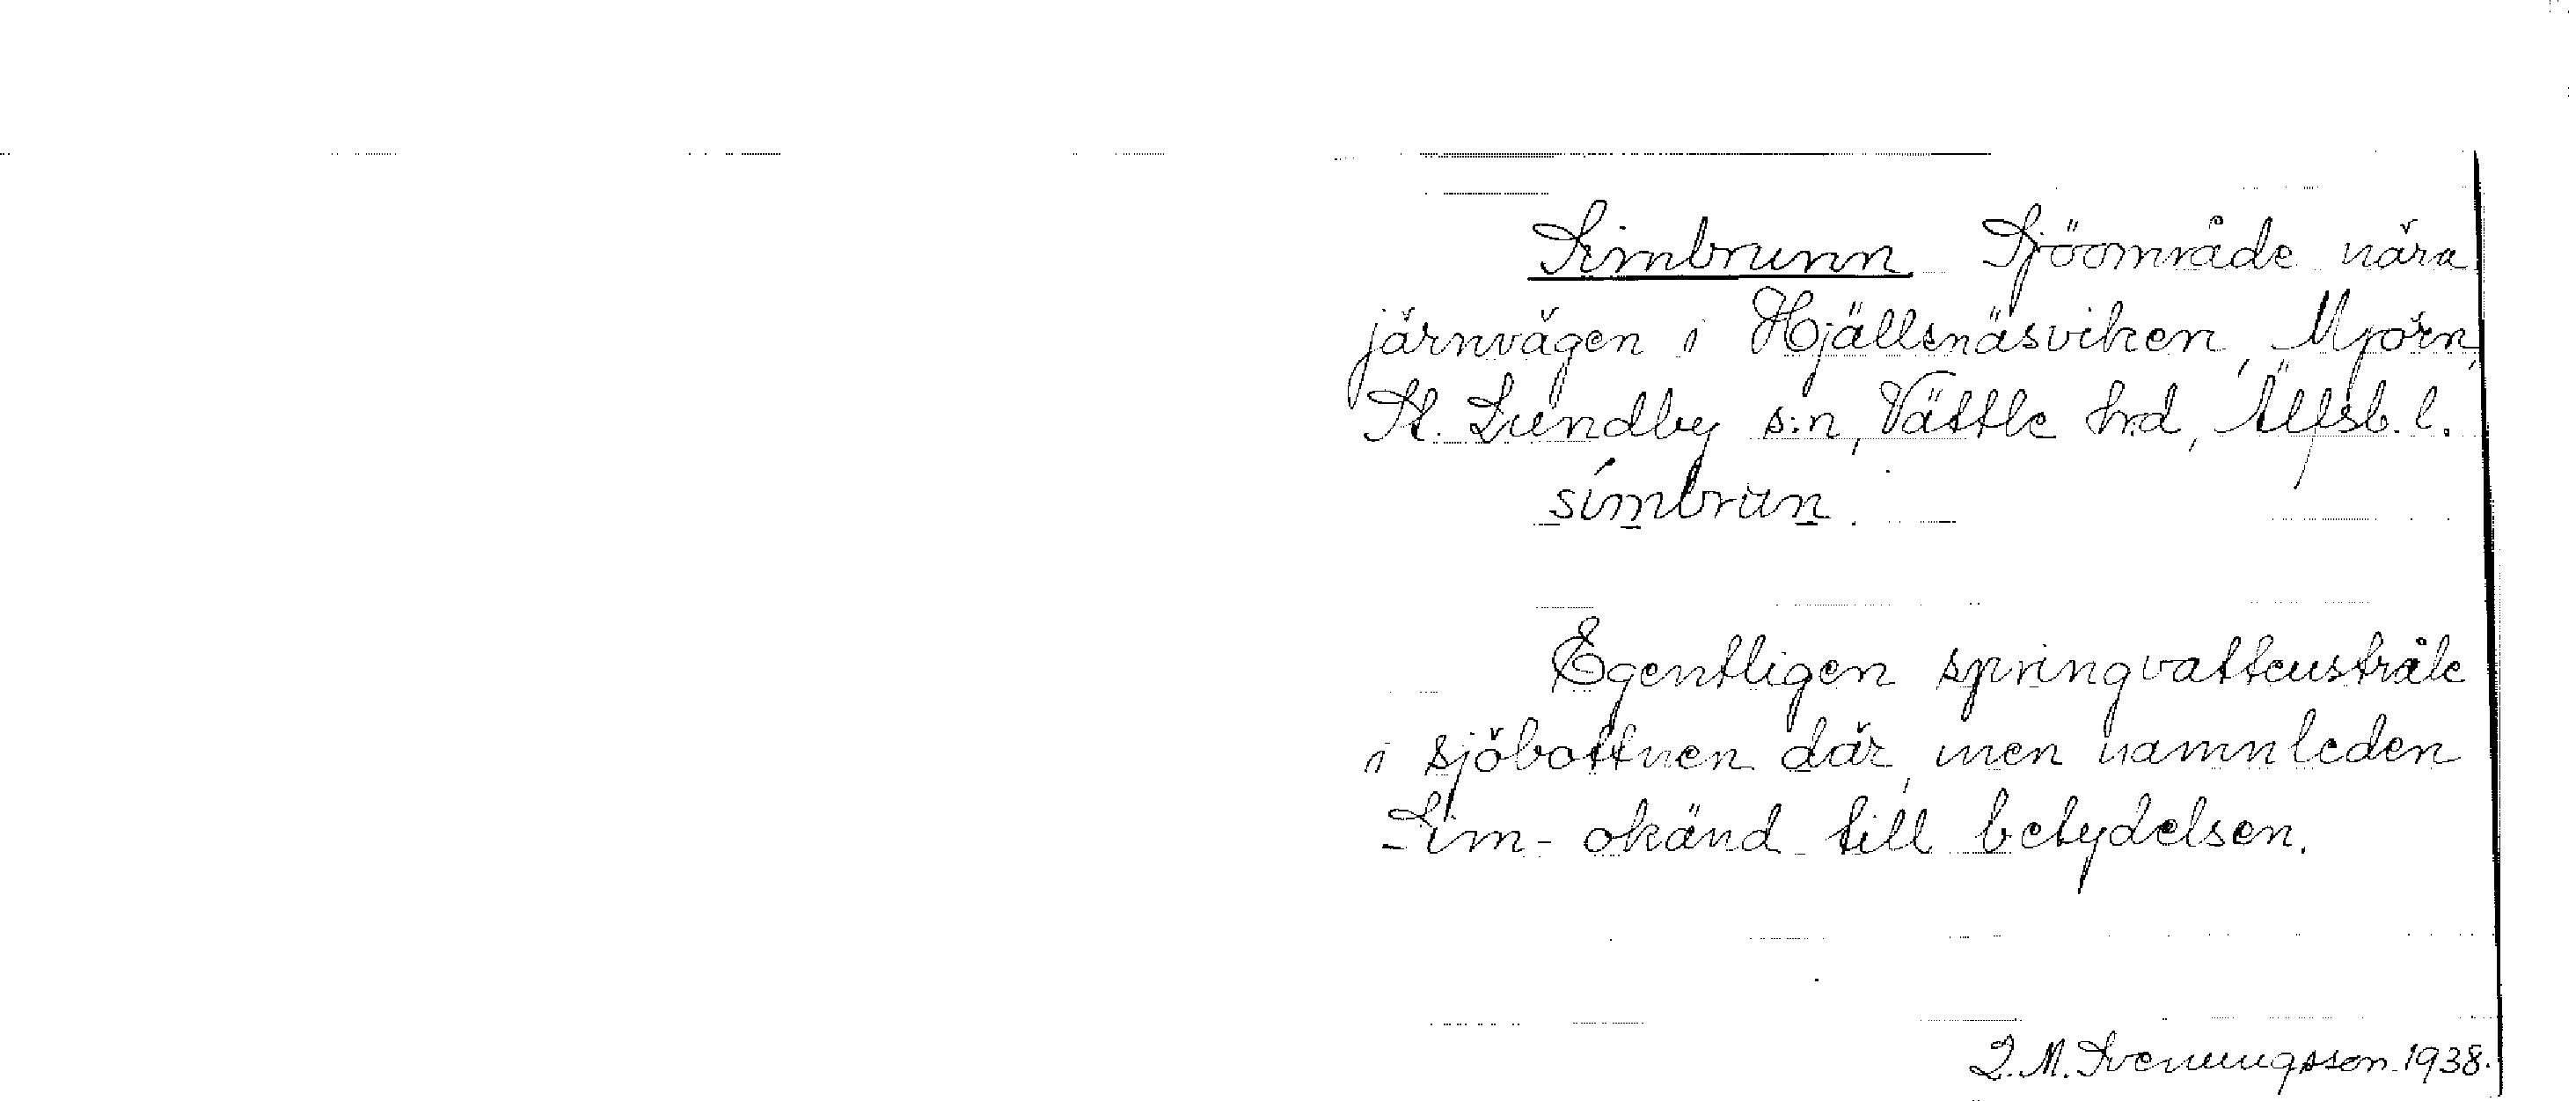 Simbrunn Sjöområde nära
järnvägen i Hjällsnäsviken, Mjörn,
St. Lundby s:n, Vättle hrd, Älfsb. l.
simbrun.
Egentligen springvattenstråle
i sjöbottnen där, men namnleden
Sim- okänd till betydelsen.
L.M. Svenungsson 1938.